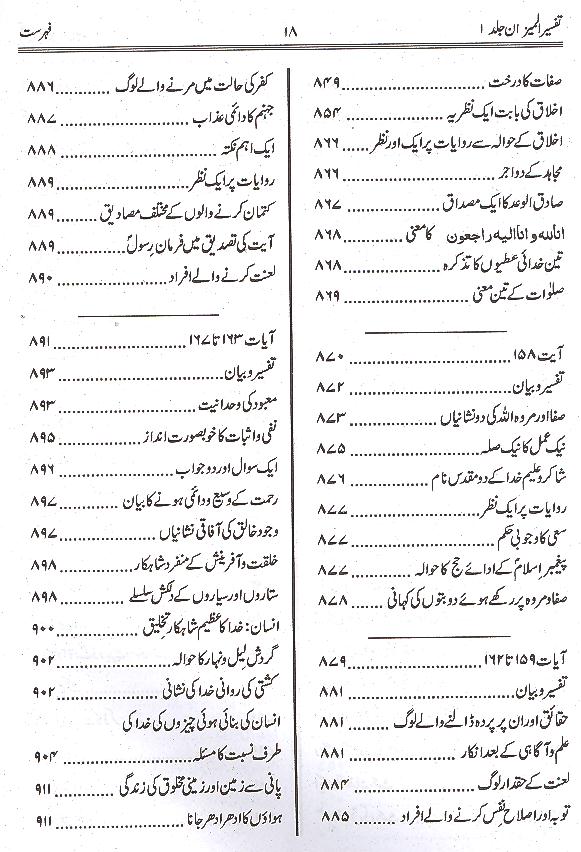 تفسیر المیزان جلد ۱
۱۸
فہرست
صفات کا درخت ........... ۸۴۹
اخلاق کی بابت ایک نظریہ ........... ۸۵۴
اخلاق کے حوالہ سے روایات پر ایک اور نظر ........... ۸۶۶
مجاہد کے دو اجر ........... ۸۶۶
صادق الوعد کا ایک مصداق ........... ۸۶۷
انا للہ و انا الیہ راجعون کا معنی ........... ۸۶۸
تین خدائی عطیوں کا تذکرہ ........... ۸۶۸
صلوٰات کے تین معنی ........... ۸۶۹
آیت ۱۵۸ ........... ۸۷۰
تفسیر و بیان ........... ۸۷۲
صفا اور مروہ اللہ کی دو نشانیاں ........... ۸۷۳
نیک عمل کا نیک صلہ ........... ۸۷۵
شاکر و علیم خدا کے دو مقدس نام ........... ۸۷۶
روایات پر ایک نظر ........... ۸۷۷
سعی کا وجوبی حکم ........... ۸۷۷
پیغمبر اسلامؐ کے ادائے حج کا حوالہ ........... ۸۷۷
صفا و مروہ پر رکھے ہوئے دو بتوں کی کہانی ........... ۸۷۸
آیات ۱۵۹ تا ۱۶۲ ........... ۸۷۹
تفسیر و بیان ........... ۸۸۱
حقائق اور ان پر پردہ ڈالنے والے لوگ ........... ۸۸۱
علم و آگاہی کے بعد انکار ........... ۸۸۱
لعنت کے حقدار لوگ ........... ۸۸۴
توبہ اور اصلاح نفس کرنے والے افراد ........... ۸۸۵
کفر کی حالت میں مرنے والے لوگ ........... ۸۸۶
جہنم کا دائمی عذاب ........... ۸۸۷
ایک اہم نکتہ ........... ۸۸۸
روایات پر ایک نظر ........... ۸۸۹
کتمان کرنے والوں کے مختلف مصادیق ........... ۸۸۹
آیت کی تصدیق میں فرمان رسولؐ ........... ۸۸۹
لعنت کرنے والے افراد ........... ۸۹۰
آیات ۱۶۳ تا ۱۶۷ ........... ۸۹۱
تفسیر و بیان ........... ۸۹۳
معبود کی وحدانیت ........... ۸۹۳
نفی و اثبات کا خوبصورت انداز ........... ۸۹۵
ایک سوال اور دو جواب ........... ۸۹۶
رحمت کے وسیع و دائمی ہونے کا بیان ........... ۸۹۷
وجود خالق کی آفاقی نشانیاں ........... ۸۹۷
خلقت و آفرینش کے منفرد شاہکار ........... ۸۹۸
ستاروں اور سیاروں کے دلکش سلسلے ........... ۸۹۸
انسان: خدا کا عظیم شاہکار تخلیق ........... ۹۰۰
گردش لیل و نہار کا حوالہ ........... ۹۰۲
کشتی کی روانی خدا کی نشانی ........... ۹۰۲
انسان کی بنائی ہوئی چیزوں کی خدا کی
طرف نسبت کا مسئلہ ........... ۹۰۴
پانی سے زمین اور زمینی مخلوق کی زندگی ........... ۹۱۱
ہواؤں کا ادھر ادھر جانا ........... ۹۱۱